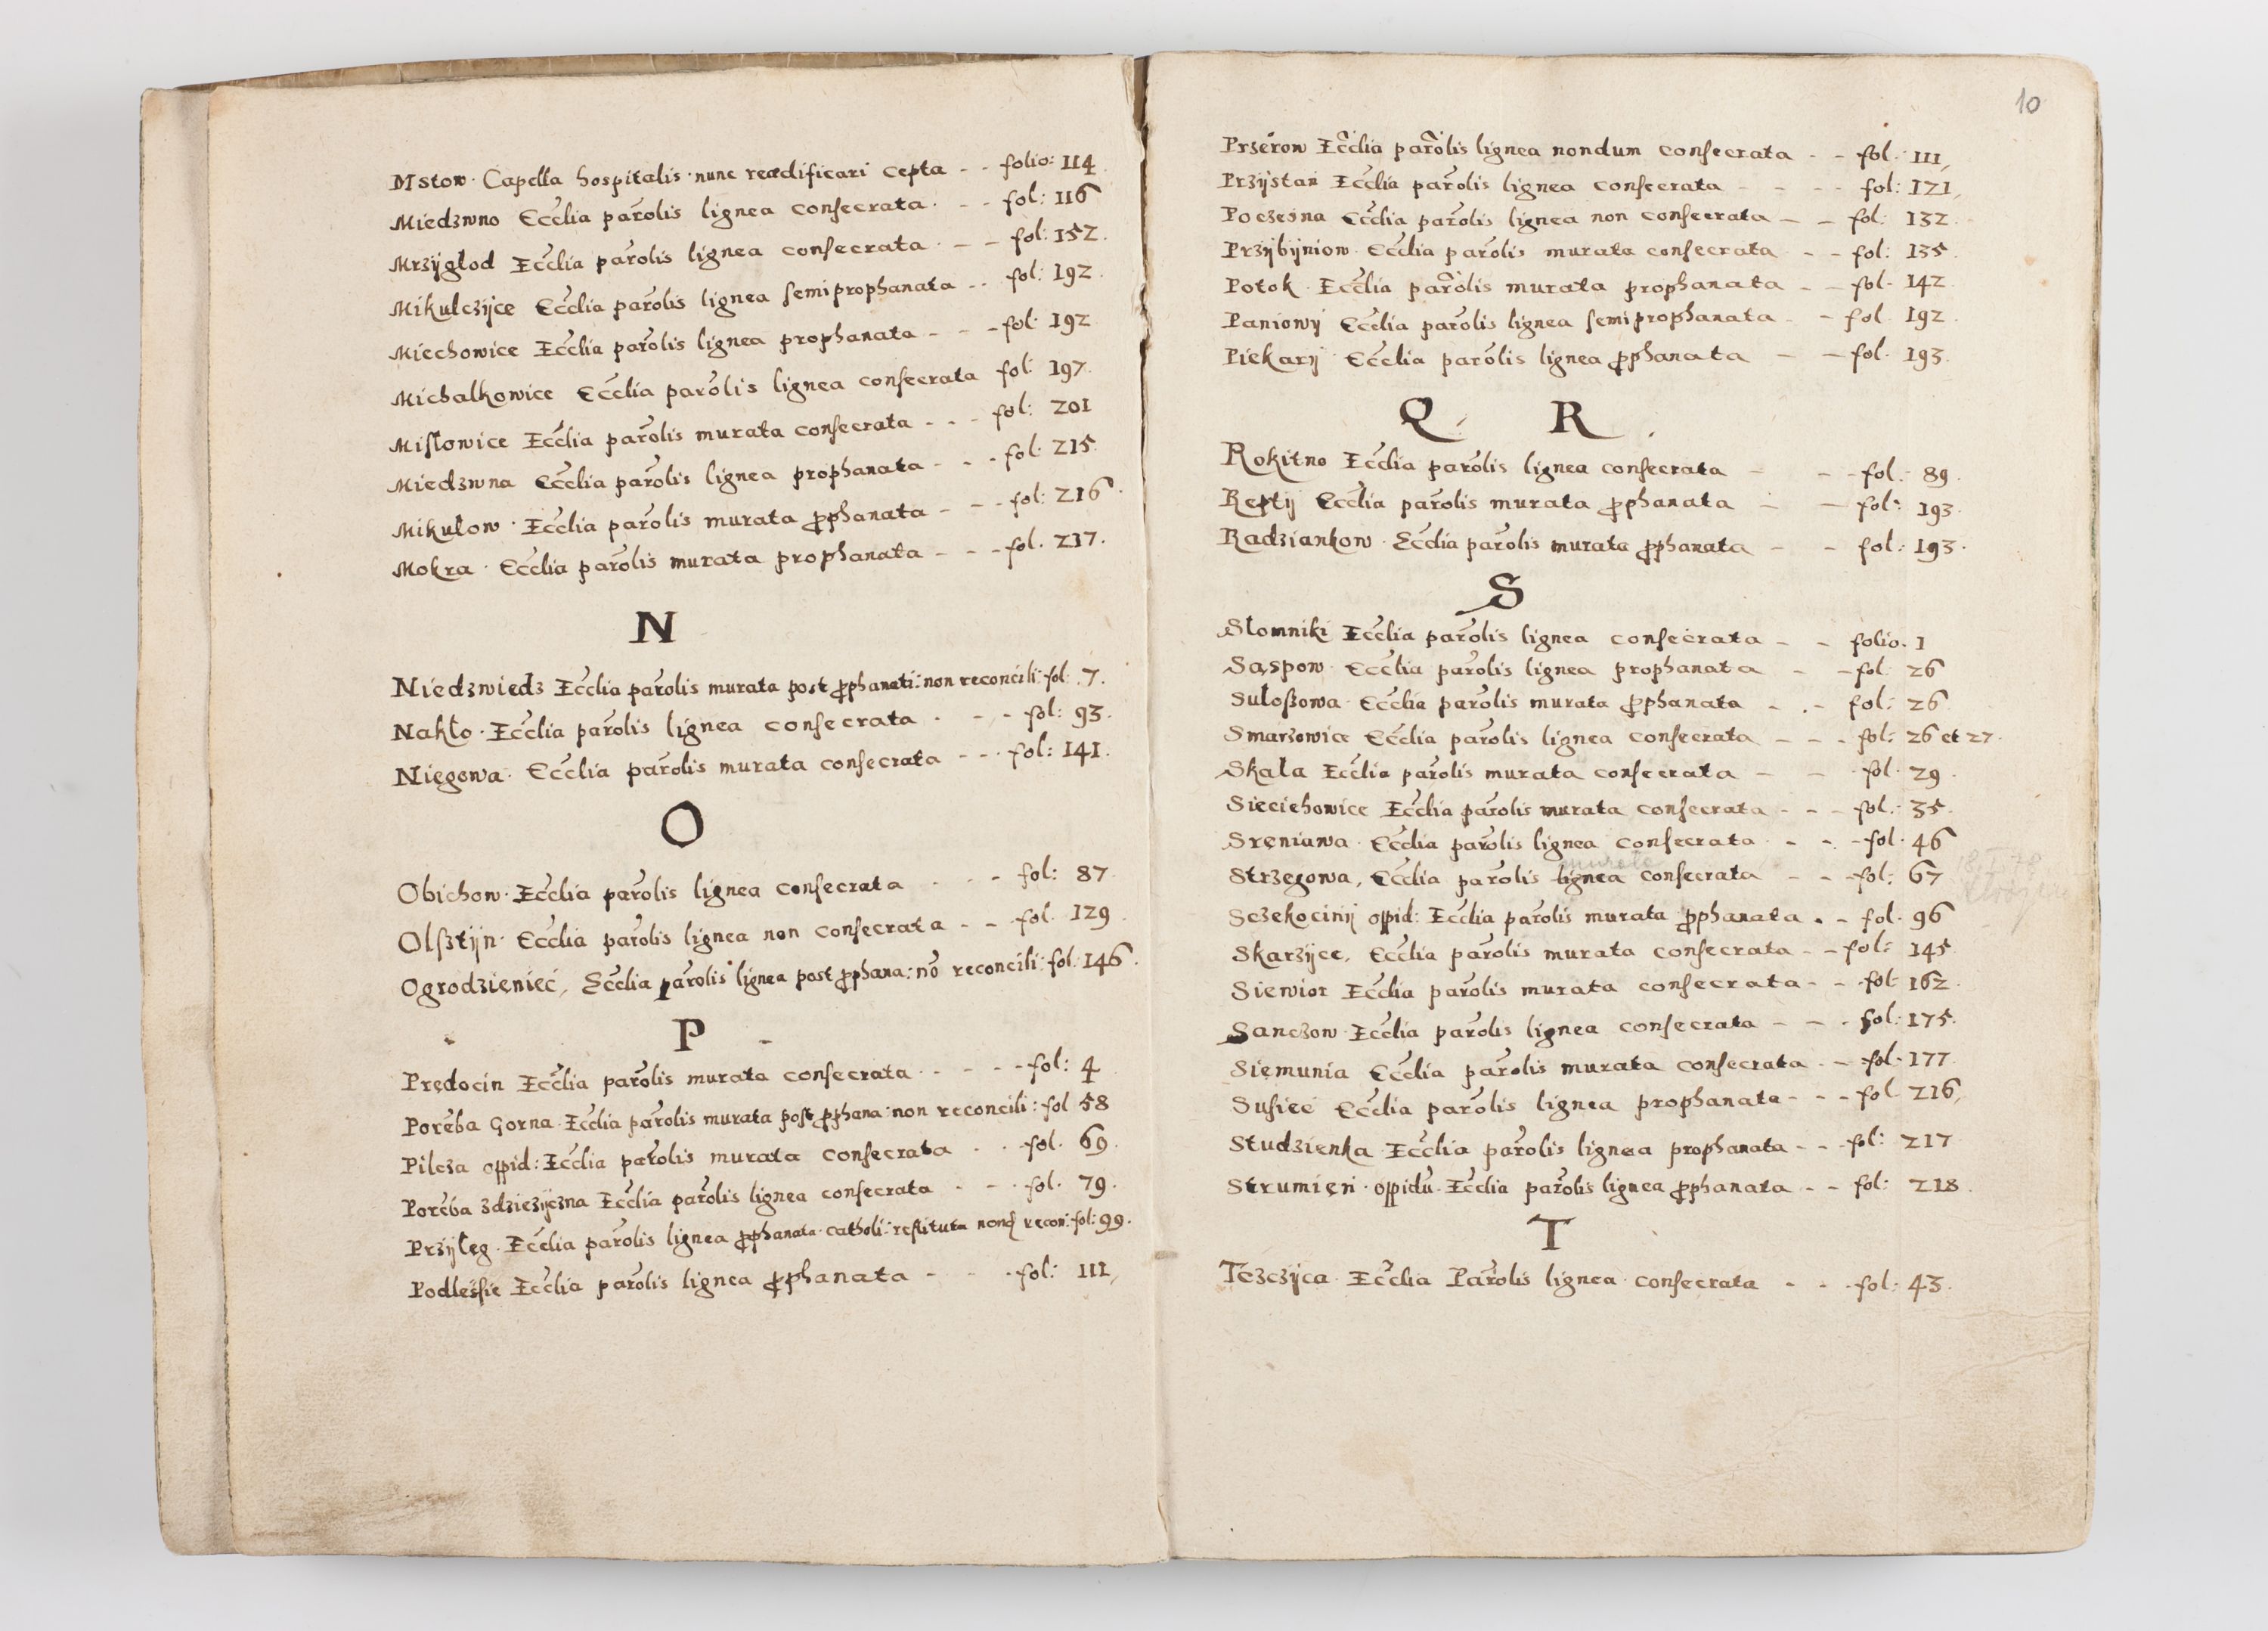 Mstow · Capella hospitalis · nunc reædificari cepta - - folio: 114
Miedzwno Ecclia parolis lignea consecrata · - - fol: 116
Mrzÿgłod Ecclia parolis lignea consecrata · - - fol: 152.
Mikulczÿce Ecclia parolis lignea semiprophanata - - fol: 192.
Miechowice Ecclia parolis lignea prophanata - - - fol: 192
Michalkowice Ecclia parolis lignea consecrata fol: 197.
Misłowice Ecclia parolis murata consecrata - - - fol: 201
Miedzwna Ecclia parolis lignea prophanata - - - fol: 215.
Mikułow · Ecclia parolis murata pphanata - - - fol: 216.
Mokra · Ecclia parolis murata prophanata - - - fol. 217.
N
Niedzwiedz Ecclia parolis murata post pphanati: non reconcili: fol: 7.
Nakło · Ecclia parolis lignea consecrata · - - fol: 93.
Niegowa · Ecclia parolis murata consecrata - - · fol: 141.
O
Obichow · Ecclia parolis lignea consecrata · - - fol: 87
Olsztÿn · Ecclia parolis lignea non consecrata - - fol. 129.
Ogrodzieniec, Ecclia parolis lignea post pphana: nō reconcili: fol: 146.
P
Prędocin Ecclia parolis murata consecrata · - - - fol: 4
Poręba Gorna · Ecclia parolis murata post pphana: non reconcili: fol 58
Pilcza oppid: Ecclia parolis murata consecrata · · fol. 69.
Poręba zdziezÿczna Ecclia parolis lignea consecrata - - · fol. 79.
Przÿłęg · Ecclia parolis lignea pphanata · catholi: restituta recon: fol: 99.
Podlesie Ecclia parolis lignea pphanata - - · fol: 111,
10
Przerow Ecclia parolis lignea nondum consecrata - - fol. 111,
Przÿstań Ecclia parolis lignea consecrata - - - - fol: 121,
Poczesna Ecclia parolis lignea non consecrata - - fol: 132.
Przÿbÿniow · Ecclia parolis murata consecrata - - fol: 135.
Potok · Ecclia parolis murata prophanata - - fol. 142.
Paniowÿ Ecclia parolis lignea semiprophanata - - fol. 192.
Piekarÿ · Ecclia parolis lignea pphanata - - fol. 193.
Q R
Rokitno Ecclia parolis lignea consecrata - - - fol: 89.
Reptÿ Ecclia parolis murata pphanata - - fol: 193.
Radziankow · Ecclia parolis murata pphanata - - fol: 193.
S
Słomniki Ecclia parolis lignea consecrata - - folio. 1
Sąspow · Ecclia parolis lignea prophanata - - fol: 26
Sułoszowa · Ecclia parolis murata pphanata - . - fol: 26
Smarzowice Ecclia parolis lignea consecrata - - - fol: 26 et 27.
Skała Ecclia parolis murata consecrata - - · fol. 29.
Sieciehowice Ecclia parolis murata consecrata - - - fol: 35.
Sręniawa · Ecclia parolis lignea consecrata · - - - fol. 46
murata
Strzegowa, Ecclia parolis lignea consecrata - - - fol: 67
Sczekocinÿ oppid: Ecclia parolis murata pphanata - - fol. 96
Skarzÿce, Ecclia parolis murata consecrata - - fol: 145.
Siewior Ecclia parolis murata consecrata - - fol: 162.
Sanczow · Ecclia parolis lignea consecrata - - - fol: 175.
Siemunia Ecclia parolis murata consecrata - - fol. 177
Susiec Ecclia parolis lignea prophanata - - - fol. 216,
Studzienka · Ecclia parolis lignea prophanata - - - fol: 217
Strumień · oppidū · Ecclia parolis lignea pphanata - - fol: 218.
T
Tczczÿca · Ecclia Parolis lignea · consecrata - - - fol: 43.